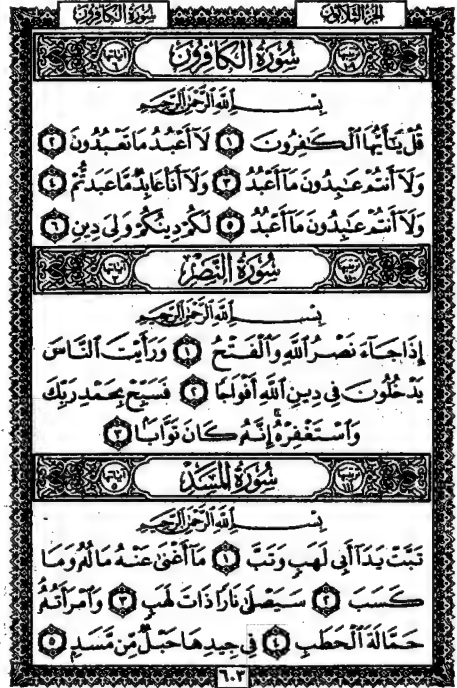 سُورَةُ الكَافِرُونَ الجُزْءُ الثَّلَاثُونَ
ترتيبها ١٠٩ سُورَةُ الكَافِرُونَ آياتها ٦
بِسْمِ اللَّهِ الرَّحْمَٰنِ الرَّحِيمِ
قُلْ يَـٰٓأَيُّهَا ٱلْكَـٰفِرُونَ ١ لَآ أَعْبُدُ مَا تَعْبُدُونَ ٢
وَلَآ أَنتُمْ عَـٰبِدُونَ مَآ أَعْبُدُ ٣ وَلَآ أَنَا۠ عَابِدٌ مَّا عَبَدتُّمْ ٤
وَلَآ أَنتُمْ عَـٰبِدُونَ مَآ أَعْبُدُ ٥ لَكُمْ دِينُكُمْ وَلِىَ دِينِ ٦
ترتيبها ١١٠ سُورَةُ النَّصْرِ آياتها ٣
بِسْمِ اللَّهِ الرَّحْمَٰنِ الرَّحِيمِ
إِذَا جَآءَ نَصْرُ ٱللَّهِ وَٱلْفَتْحُ ١ وَرَأَيْتَ ٱلنَّاسَ
يَدْخُلُونَ فِى دِينِ ٱللَّهِ أَفْوَاجًا ٢ فَسَبِّحْ بِحَمْدِ رَبِّكَ
وَٱسْتَغْفِرْهُ ۚ إِنَّهُۥ كَانَ تَوَّابًۢا ٣
ترتيبها ١١١ سُورَةُ المَسَدِ آياتها ٥
بِسْمِ اللَّهِ الرَّحْمَٰنِ الرَّحِيمِ
تَبَّتْ يَدَآ أَبِى لَهَبٍ وَتَبَّ ١ مَآ أَغْنَىٰ عَنْهُ مَالُهُۥ وَمَا
كَسَبَ ٢ سَيَصْلَىٰ نَارًا ذَاتَ لَهَبٍ ٣ وَٱمْرَأَتُهُۥ
حَمَّالَةَ ٱلْحَطَبِ ٤ فِى جِيدِهَا حَبْلٌ مِّن مَّسَدٍۭ ٥
٦٠٣